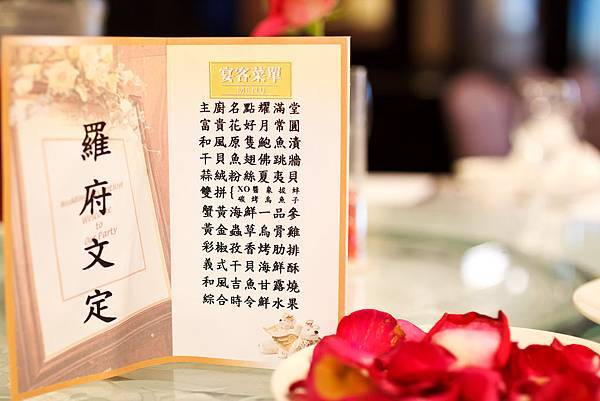 羅府文定
宴客菜單
MENU
主廚名點耀滿堂
富貴花好月常圓
和風原隻鮑魚漬
干貝魚翅佛跳牆
蒜絨粉絲夏夷貝
雙拼{XO醬碳烤 象拔鮮烏魚子
蟹黃海鮮一品參
黃金蟲草烏骨雞
彩椒孜香烤肋排
義式干貝海鮮酥
和風吉魚甘露燒
綜合時令鮮水果